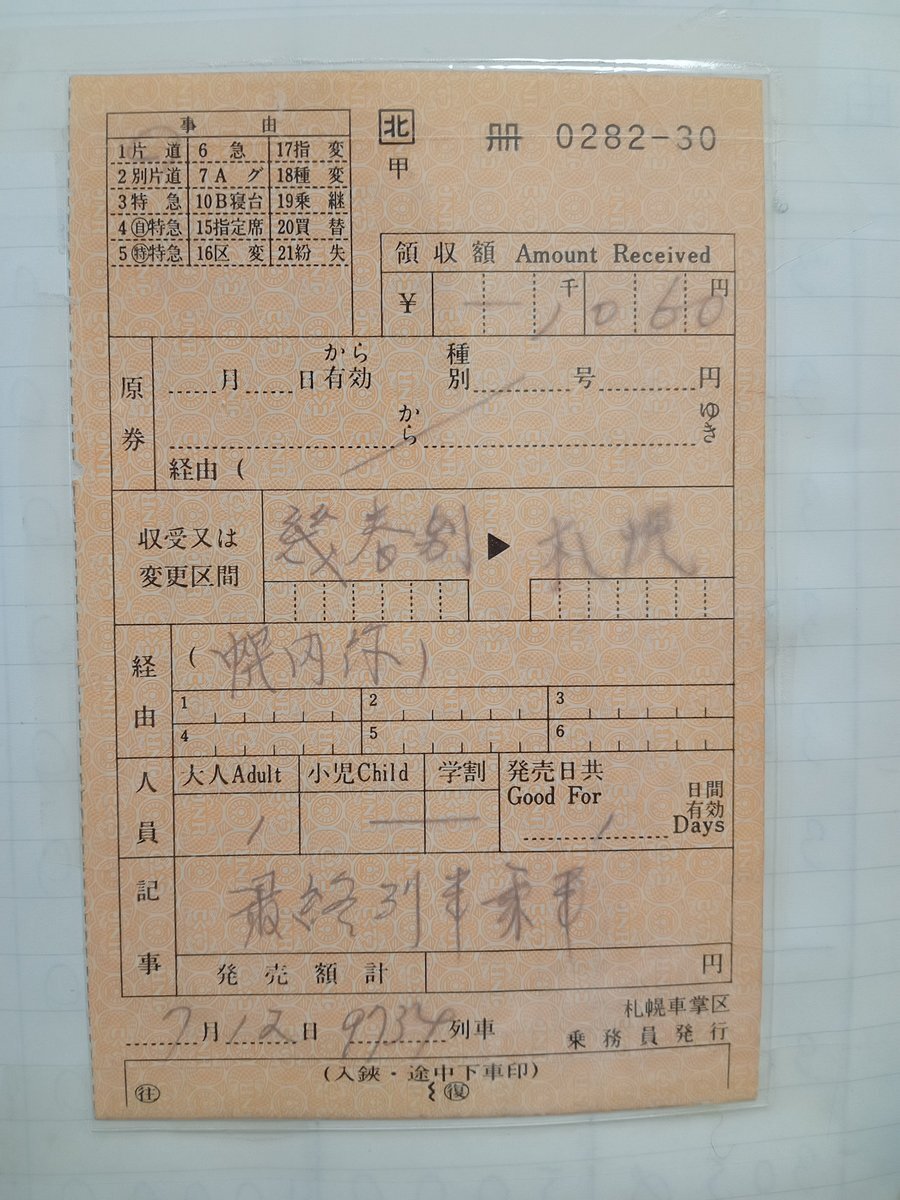 事由
1片道 6急 17指変
2別片道 7Aグ 18種変
3特急 10B寝台 19乗継
4㊐特急 15指定席 20買替
5㊕特急 16区変 21紛失
北 冊 0282-30
甲
領収額 Amount Received
¥ 1,060 千 円
原券
月 日から有効 種別 号 円
から ゆき
経由(
収受又は変更区間
幾春別 ▶ 札幌
経由
(幌内線)
1 2 3
4 5 6
人員
大人Adult 小児Child 学割 発売日共
Good For 日間有効
1 1 Days
記事
最終列車乗車
発売額計 円
7月12日 列車
札幌車掌区
乗務員発行
(入鋏・途中下車印)
往 復